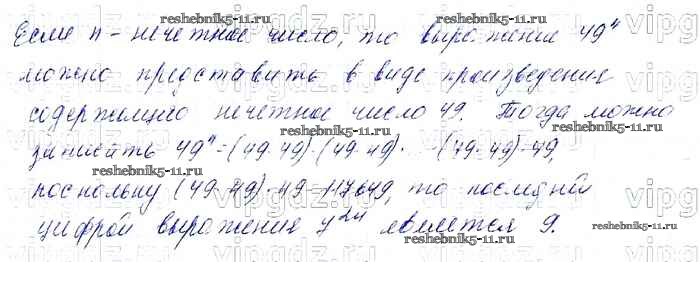 Если n - нечетное число, то выражение 49ⁿ
можно представить в виде произведения
содержащего нечетное число 49. Тогда можно
записать 49ⁿ=(49·49)·(49·49)·...·(49·49)·49,
поскольку (49·49)·49=117649, то последней
цифрой выражения является 9.
reshebnik5-11.ru
reshebnik5-11.ru
reshebnik5-11.ru
reshebnik5-11.ru
reshebnik5-11.ru
reshebnik5-11.ru
vipgdz.ru